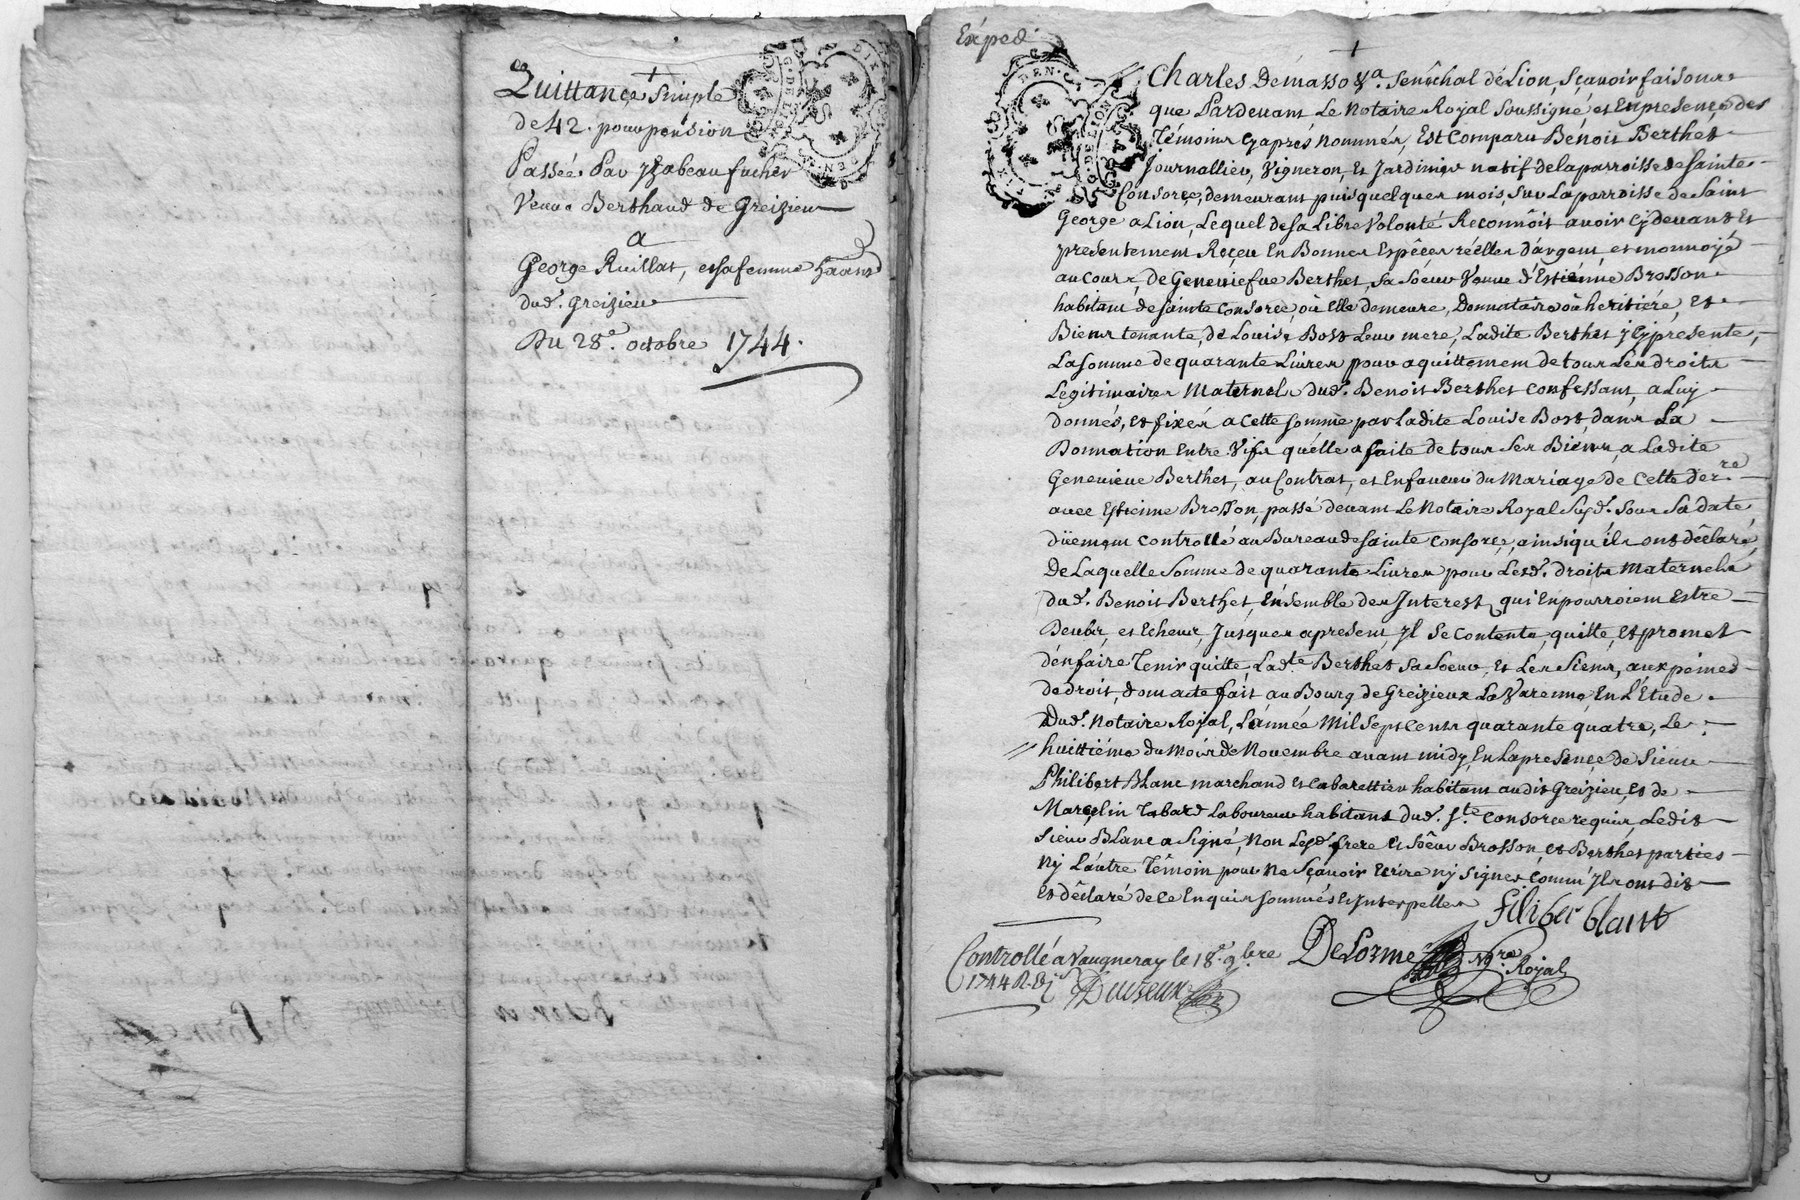 Quittance Simple
de 42. pour pension
Passée Par Yzabeau fucher
Veuve Berthaud de Greizieu
a
George Ruillat, et sa femme
dud. Greizieu
Du 28e. octobre 1744.
Exped
Charles Demasso &a. Senêchal de Lion, Sçavoir faisons
que Pardevant Le Notaire Royal Soussigné, et En presence des
Témoins Cyaprés nommés, Est Comparu Benoit Berthet
Journallier, Vigneron, et Jardinier natif de la parroisse de Sainte
Consorce, demeurant puis quelques mois, Sur La parroisse de Saint
George a Lion, Lequel de sa Libre Volonté Reconnôit avoir Cydevant et
presentement Reçeu En Bonnes Espêces réelles d'argent, et monnoyé
au cours, de Geneviefve Berthet, Sa Soeur Veuve d'Estienne Brosson
habitant de Sainte Consorce, où Elle demeure, Donnataire où heritiére, Et
Biens tenante, de Louise Bost Leur mere, Ladite Berthet ycy presente,
La Somme de quarante Livres pour aquittement de tous Les droits
Legitimaires Maternels dud. Benoit Berthet Confessant, a Luy
donnés, et fixés a Cette Somme par Ladite Louise Bost, dans La
Donnation Entre Vifs qu'elle a faite de tous Ses Biens, a Ladite
Genevieve Berthet, au Contrat, et En faveur du Mariage de Cette derre.
avec Estienne Brosson, passé devant Le Notaire Royal Susd. Sous Sa date
düement Controllé au Bureau de Sainte Consorce, ainsi qu'ils ont dêclaré,
De Laquelle Somme de quarante Livres pour Lesd. droits Maternels
dud. Benoit Berthet, Ensemble des Interest, qui En pourroient Estre
Deubs, et Echeus, Jusques a present, Jl Se Contente, quitte, et promet
d'en faire Tenir quitte, Ladte Berthet Sa Soeur, et Les Siens, aux peines
de droit, dont acte fait au Bourg de Greizieux La Varenne, En L'Etude
Dud. Notaire Royal, L'année Mil Sept Cents quarante quatre, Le
huittiéme du Mois de Novembre avant midy, En La presence de Sieur
Philibert Blanc marchand et Cabarettier habitant audit Greizieu, et de
Marcelin Tabard Laboureur habitant dud. Ste. Consorce requis, Ledit
Sieur Blanc a Signé, Non Lesd. frere et Sôeur Brosson, et Berthet parties
Ny L'autre Têmoin pour Ne Sçavoir Ecrire ny Signer Comm'Jls ont dit
et dêclaré de ce Enquis Sommés et Interpellés
filiber blanc
Controllé a Vaugneray le 18e. 9bre
DeLorme Nre Royal
1744 R.